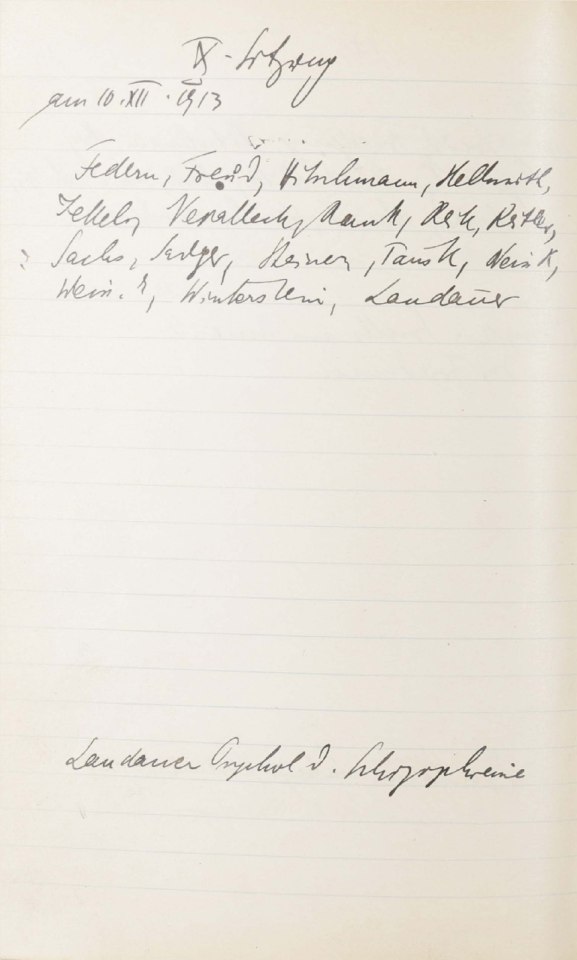 IX. Sitzung
am 10. XII. 1913
Federn, Freud, Hitschmann, Hellwuth,
Jekels, Rank, Reik, Reitler,
Sachs, Sadger, Steiner, Tausk, Weiss K,
Wein. r, Winterstein, Landauer
Landauer Psychol d. Schizophrenie